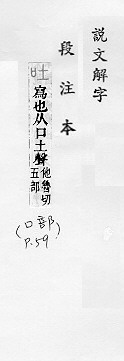 說文解字
段注本
吐
寫也从口土聲
他魯切
五部
(口部
P.59)